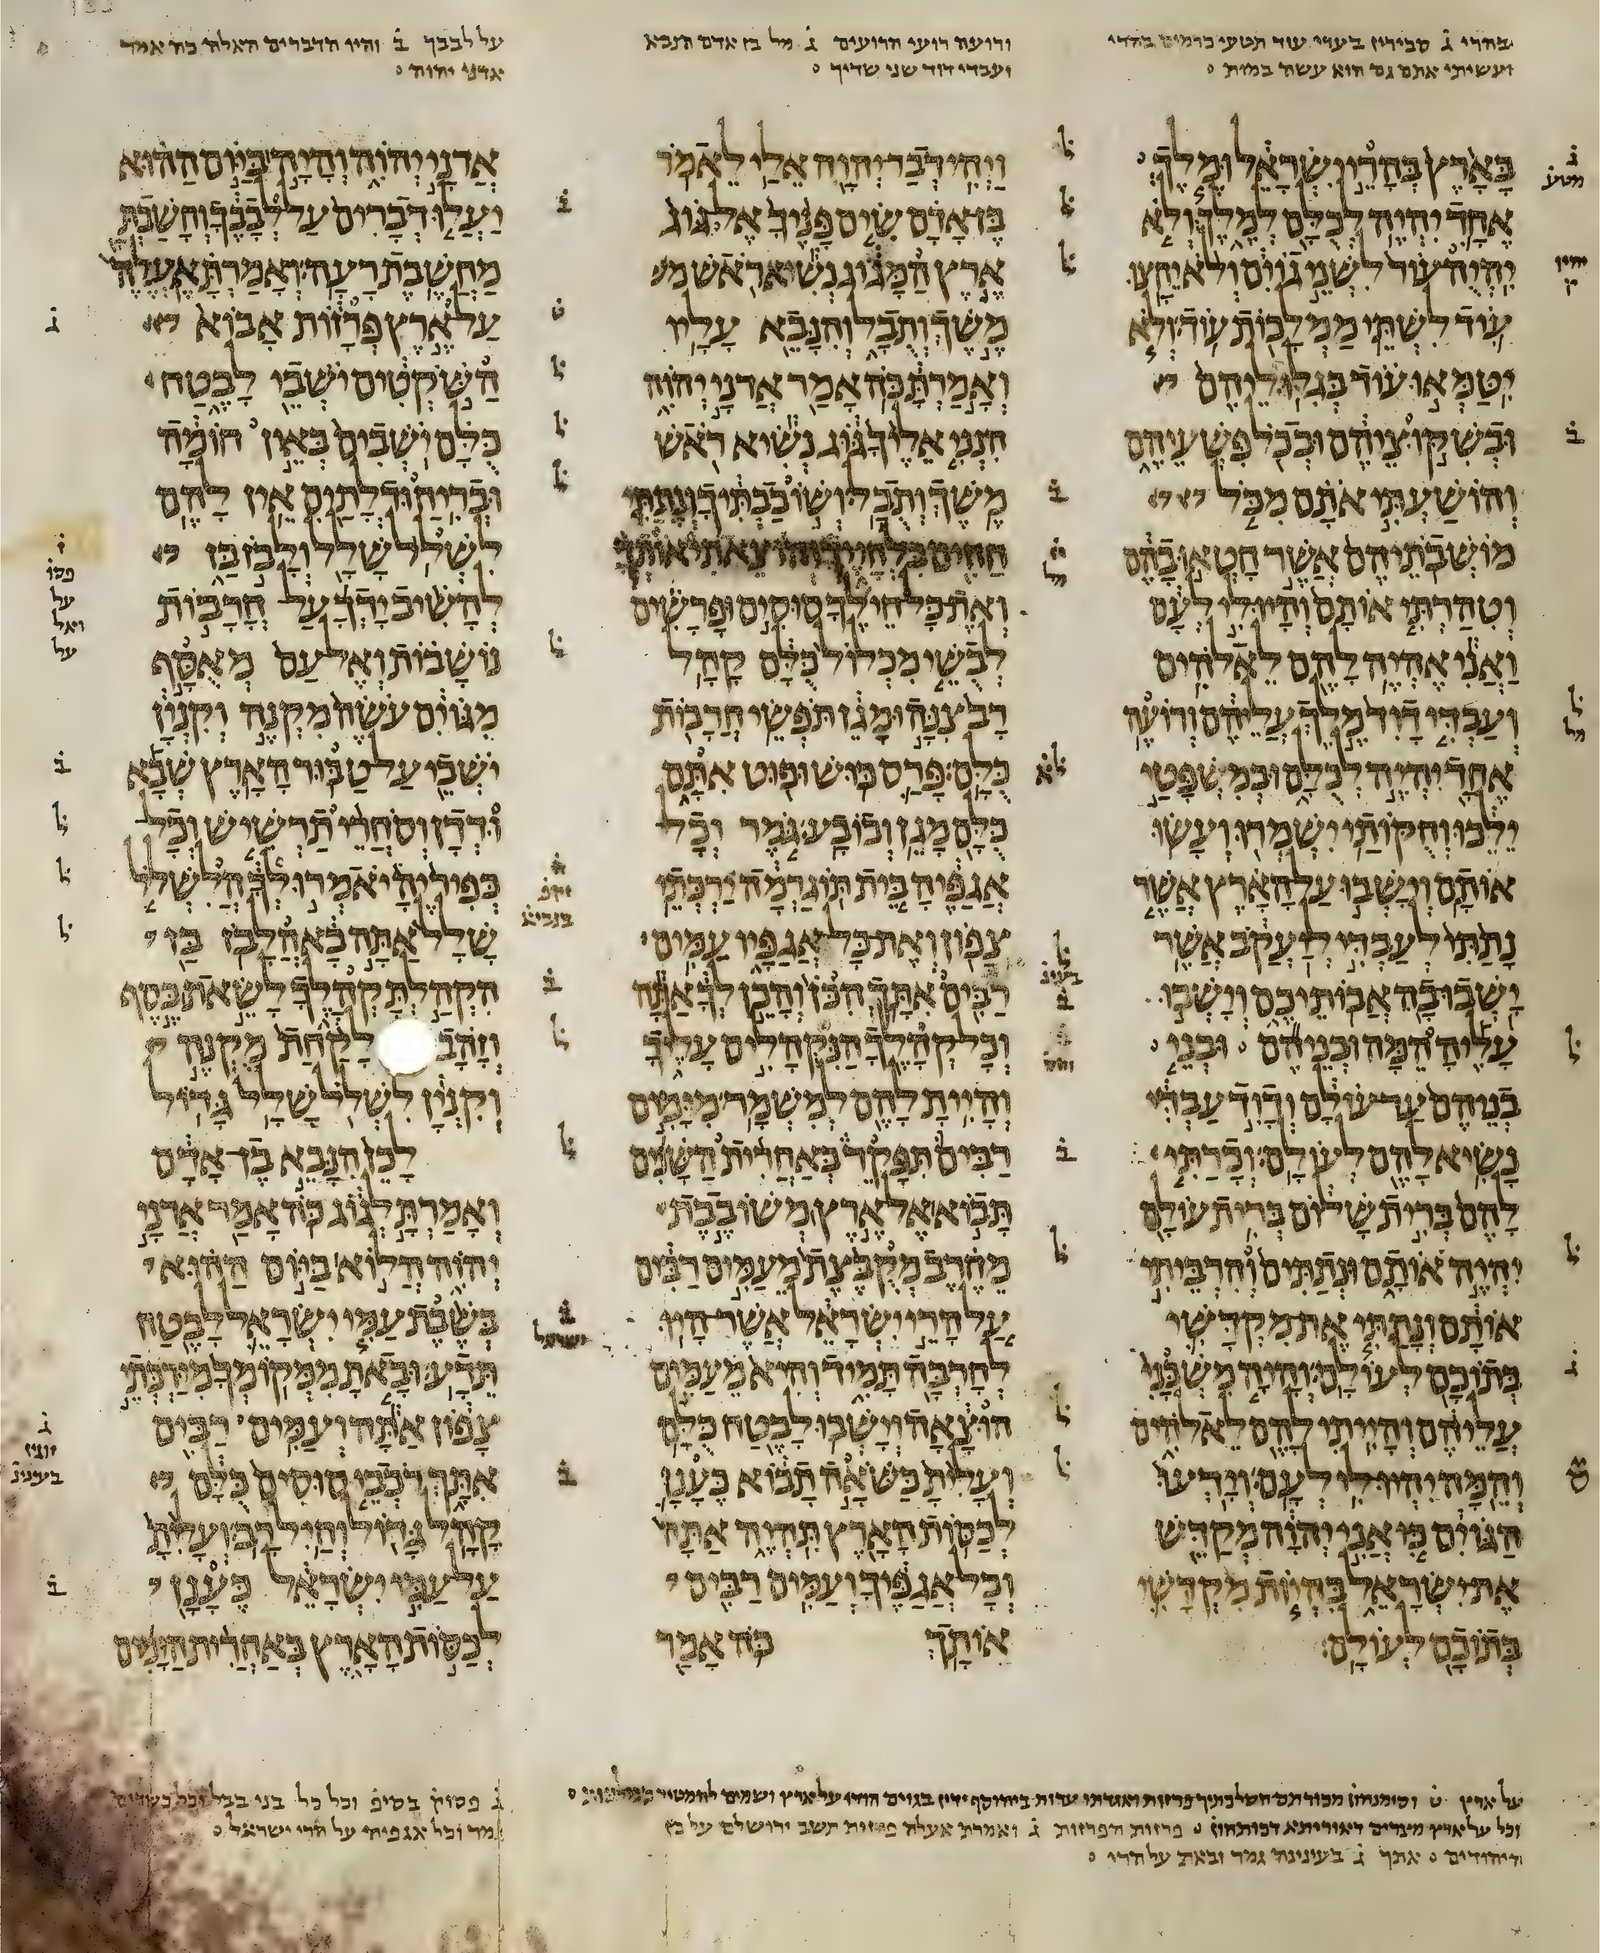 בהרי ג סבירין בערי עוד תטעי כרמים בהרי
ועשיתי אתם גם הוא עשה במות
ורועה רועי הרועים ג מל בן אדם הנבא
ועבדי דוד שני שדיך
על לבבך ב והיו הדברים האלה כה אמר
אדני יהוה
בארץ בהרי ישראל ומלך
אחד יהיה לכלם למלך ולא
יהיה עוד לשני גוים ולא יחצו
עוד לשתי ממלכות עוד ולא
יטמאו עוד בגלוליהם
ובשקוציהם ובכל פשעיהם
והושעתי אתם מכל
מושבתיהם אשר חטאו בהם
וטהרתי אותם והיו לי לעם
ואני אהיה להם לאלהים
ועבדי דוד מלך עליהם ורועה
אחד יהיה לכלם ובמשפטי
ילכו וחקותי ישמרו ועשו
אותם וישבו על הארץ אשר
נתתי לעבדי ליעקב אשר
ישבו בה אבותיכם וישבו
עליה המה ובניהם ובני
בניהם עד עולם ודוד עבדי
נשיא להם לעולם וכרתי
להם ברית שלום ברית עולם
יהיה אותם ונתתים והרביתי
אותם ונתתי את מקדשי
בתוכם לעולם והיה משכני
עליהם והייתי להם לאלהים
והמה יהיו לי לעם וידעו
הגוים כי אני יהוה מקדש
את ישראל בהיות מקדשי
בתוכם לעולם
ויהי דבר יהוה אלי לאמר
בן אדם שים פניך אל גוג
ארץ המגוג נשיא ראש
משך ותבל והנבא עליו
ואמרת כה אמר אדני יהוה
הנני אליך גוג נשיא ראש
משך ותבל ושובבתיך ונתתי
חחים בלחייך והוצאתי אותך
ואת כל חילך סוסים ופרשים
לבשי מכלול כלם קהל
רב צנה ומגן תפשי חרבות
כלם פרס כוש ופוט אתם
כלם מגן וכובע גמר וכל
אגפיה בית תוגרמה ירכתי
צפון ואת כל אגפיו עמים
רבים אתך הכן והכן לך אתה
וכל קהלך הנקהלים עליך
והיית להם למשמר מימים
רבים תפקד באחרית השנים
תבוא אל ארץ משובבת
מחרב מקבצת מעמים רבים
על הרי ישראל אשר היו
לחרבה תמיד והיא מעמים
הוצאה וישבו לבטח כלם
ועלית כשאה תבוא כענן
לכסות הארץ תהיה אתה
וכל אגפיך ועמים רבים
אותך כה אמר
אדני יהוה והיה ביום ההוא
יעלו דברים על לבבך וחשבת
מחשבת רעה ואמרת אעלה
על ארץ פרזות אבוא
השקטים ישבי לבטח
כלם ישבים באין חומה
ובריח ודלתים אין להם
לשלל שלל ולבז בז
להשיב ידך על חרבות
נושבות ואל עם מאסף
מגוים עשה מקנה וקנין
ישבי על טבור הארץ שבא
ודדן וסחרי תרשיש וכל
כפיריה יאמרו לך הלשלל
שלל אתה בא הלבז בז
הקהלת קהלך לשאת כסף
וזהב לקחת מקנה
וקנין לשלל שלל גדול
לכן הנבא בן אדם
ואמרת לגוג כה אמר אדני
יהוה הלוא ביום ההוא
בשבת עמי ישראל לבטח
תדע ובאת ממקומך מירכתי
צפון אתה ועמים רבים
אתך רכבי סוסים כלם
קהל גדול וחיל רב ועלית
על עמי ישראל כענן
לכסות הארץ באחרית הימים
וכל על ארץ מצרים דאוריתא דכותהון פרזות הפרזות ג ואמרת אעלה פרזות תשב ירושלם על כן
היהודים אתך ג בעינינה גמר ובאת על הרי
ג פסוק בסיפ וכל כל בני בבל וכל כשדים
גמר וכל אגפיה על הרי ישראל